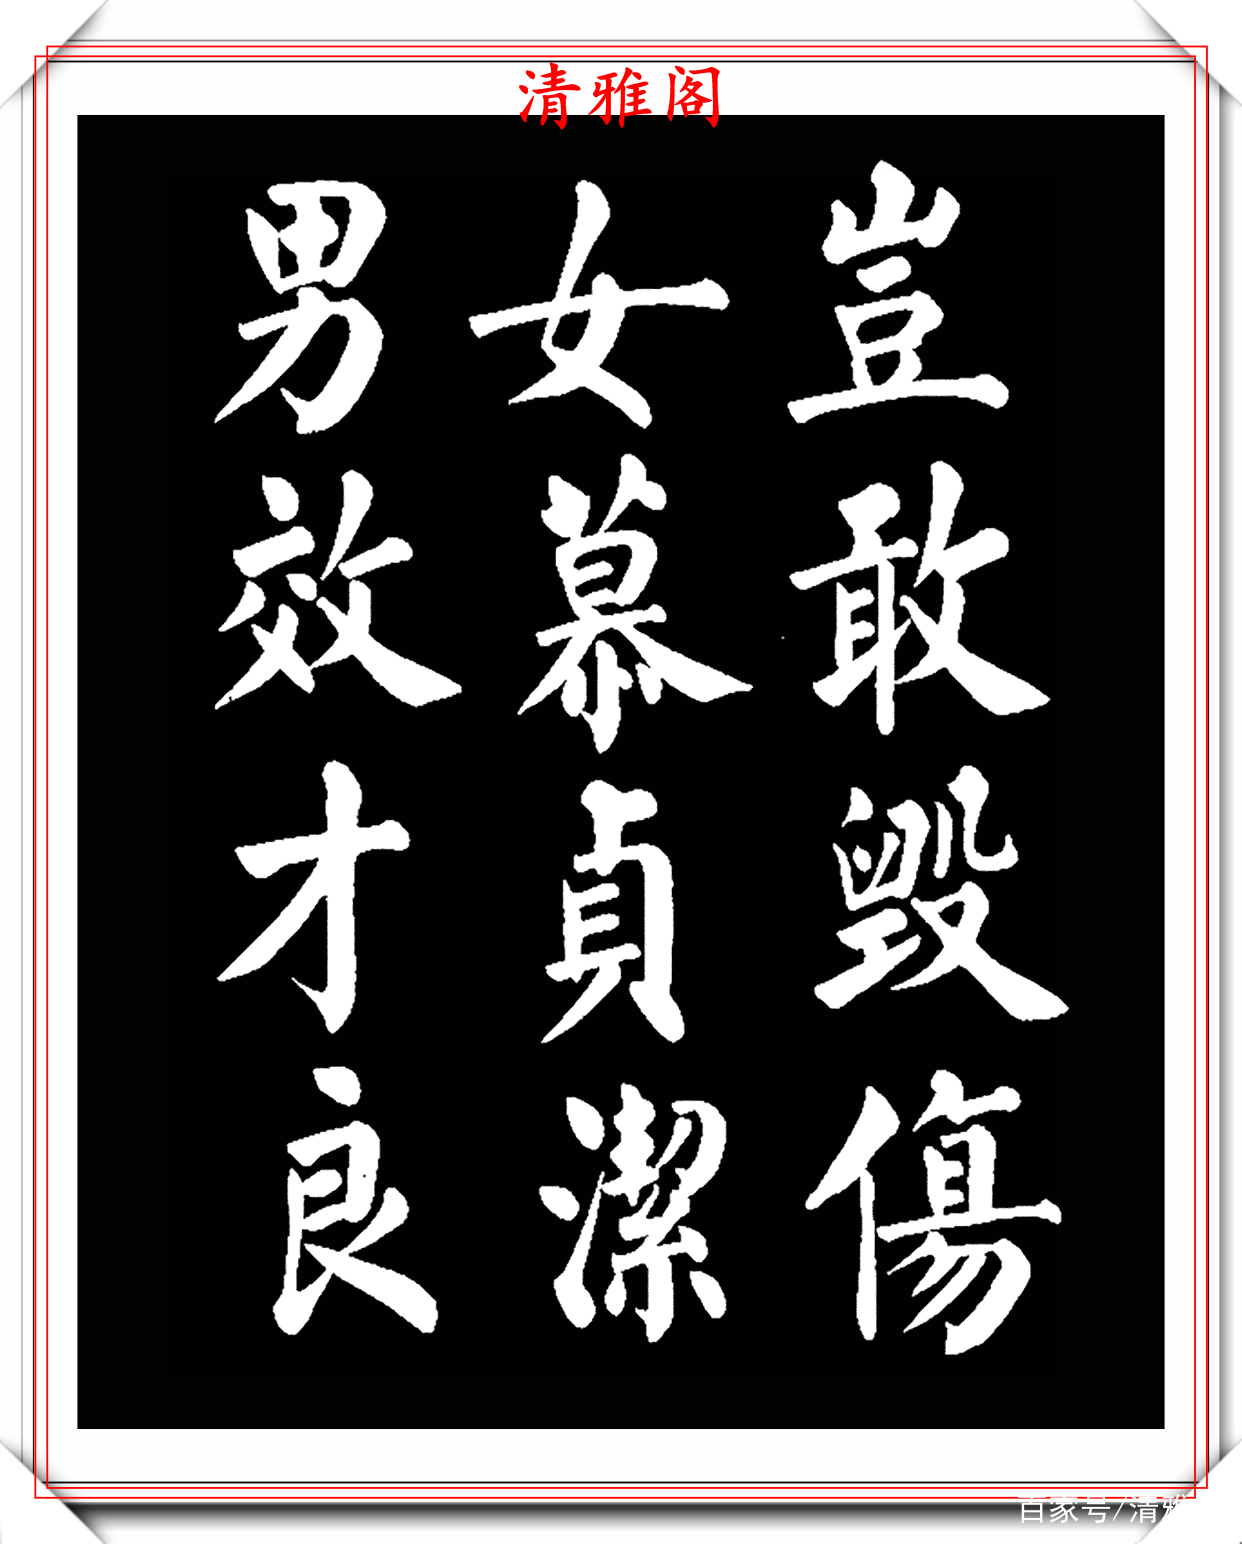 清雅阁
豈敢毀傷
女慕貞潔
男效才良
百家号/清雅